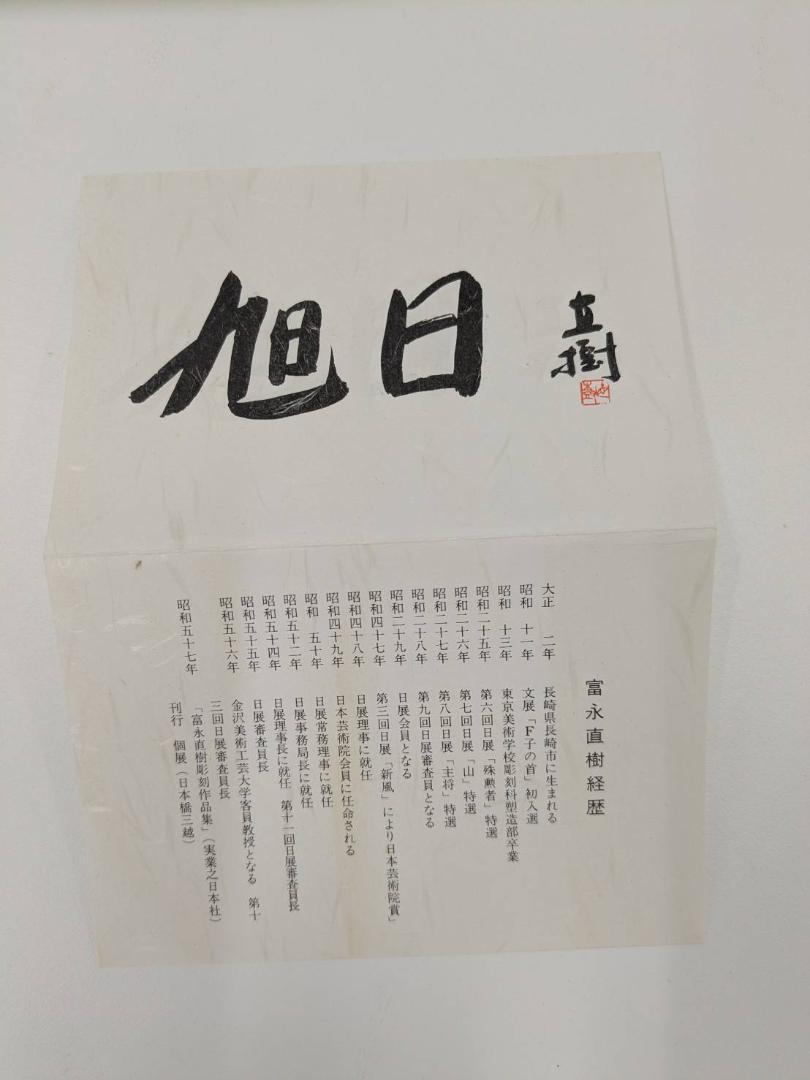 旭日
直樹
富永直樹経歴
大正 二年 長崎県長崎市に生まれる
昭和 十一年 文展「F子の首」初入選
昭和 十三年 東京美術学校彫刻科塑造部卒業
昭和二十五年 第六回日展「殊勲者」特選
昭和二十六年 第七回日展「山」特選
昭和二十七年 第八回日展「主将」特選
昭和二十八年 第九回日展審査員となる
昭和二十九年 日展会員となる
昭和四十七年 第三回日展「新風」により日本芸術院賞」
昭和四十八年 日展理事に就任
昭和四十九年 日本芸術院会員に任命される
昭和 五十年 日展常務理事に就任
昭和五十二年 日展事務局長に就任
昭和五十四年 日展理事長に就任 第十一回日展審査員長
昭和五十五年 日展審査員長
昭和五十六年 金沢美術工芸大学客員教授となる 第十
三回日展審査員長
昭和五十七年 「富永直樹彫刻作品集」(実業之日本社)
刊行 個展(日本橋三越)